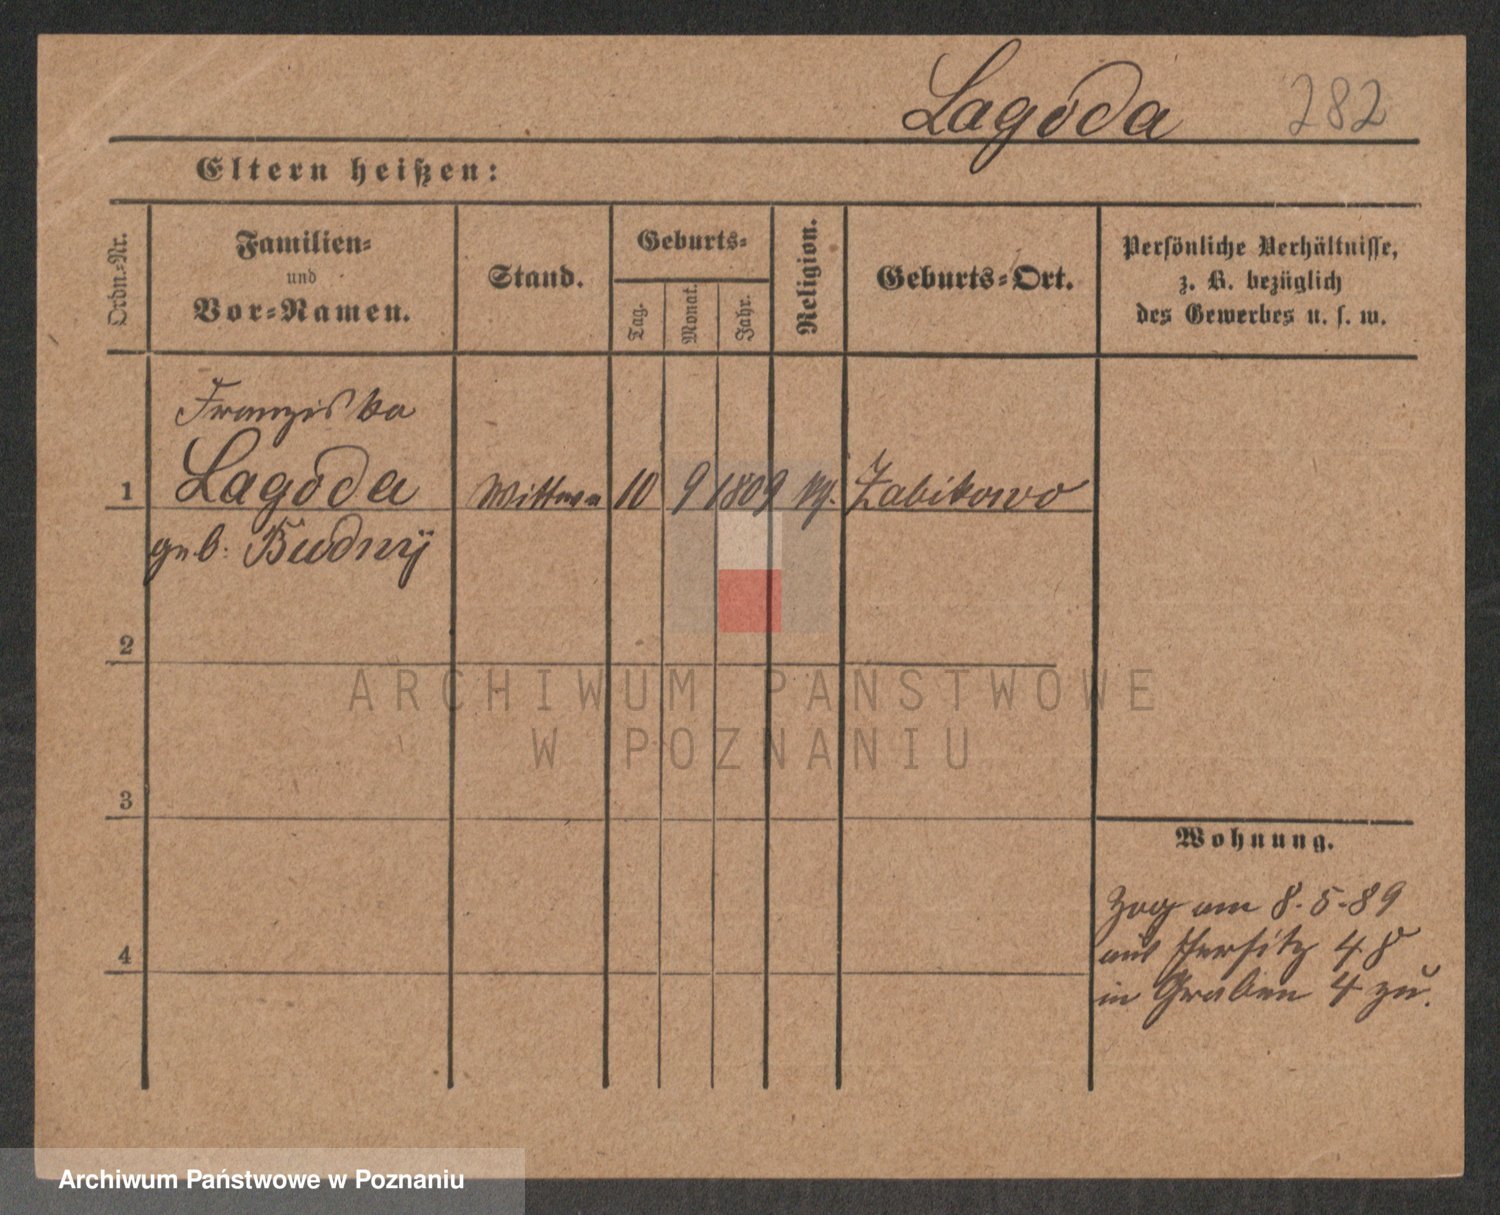 Lagoda 282
Eltern heißen:
Ordn.-Nr.
Familien-
und
Vor-Namen.
Stand.
Geburts-
Tag.
Monat.
Jahr.
Religion.
Geburts-Ort.
Persönliche Verhältnisse,
z. B. bezüglich
des Gewerbes u. s. w.
Franziska
1 Lagoda Wittwe 10 9 1809 Zabikowo
geb: Budnÿ
2
3
4
Wohnung.
Zog am 8.5.89
aus Jersitz 48
in Graben 4 zu.
ARCHIWUM PAŃSTWOWE
W POZNANIU
Archiwum Państwowe w Poznaniu